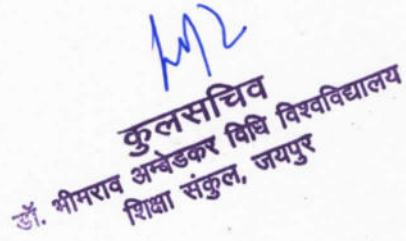 कुलसचिव
डॉ. भीमराव अम्बेडकर विधि विश्वविद्यालय
शिक्षा संकुल, जयपुर